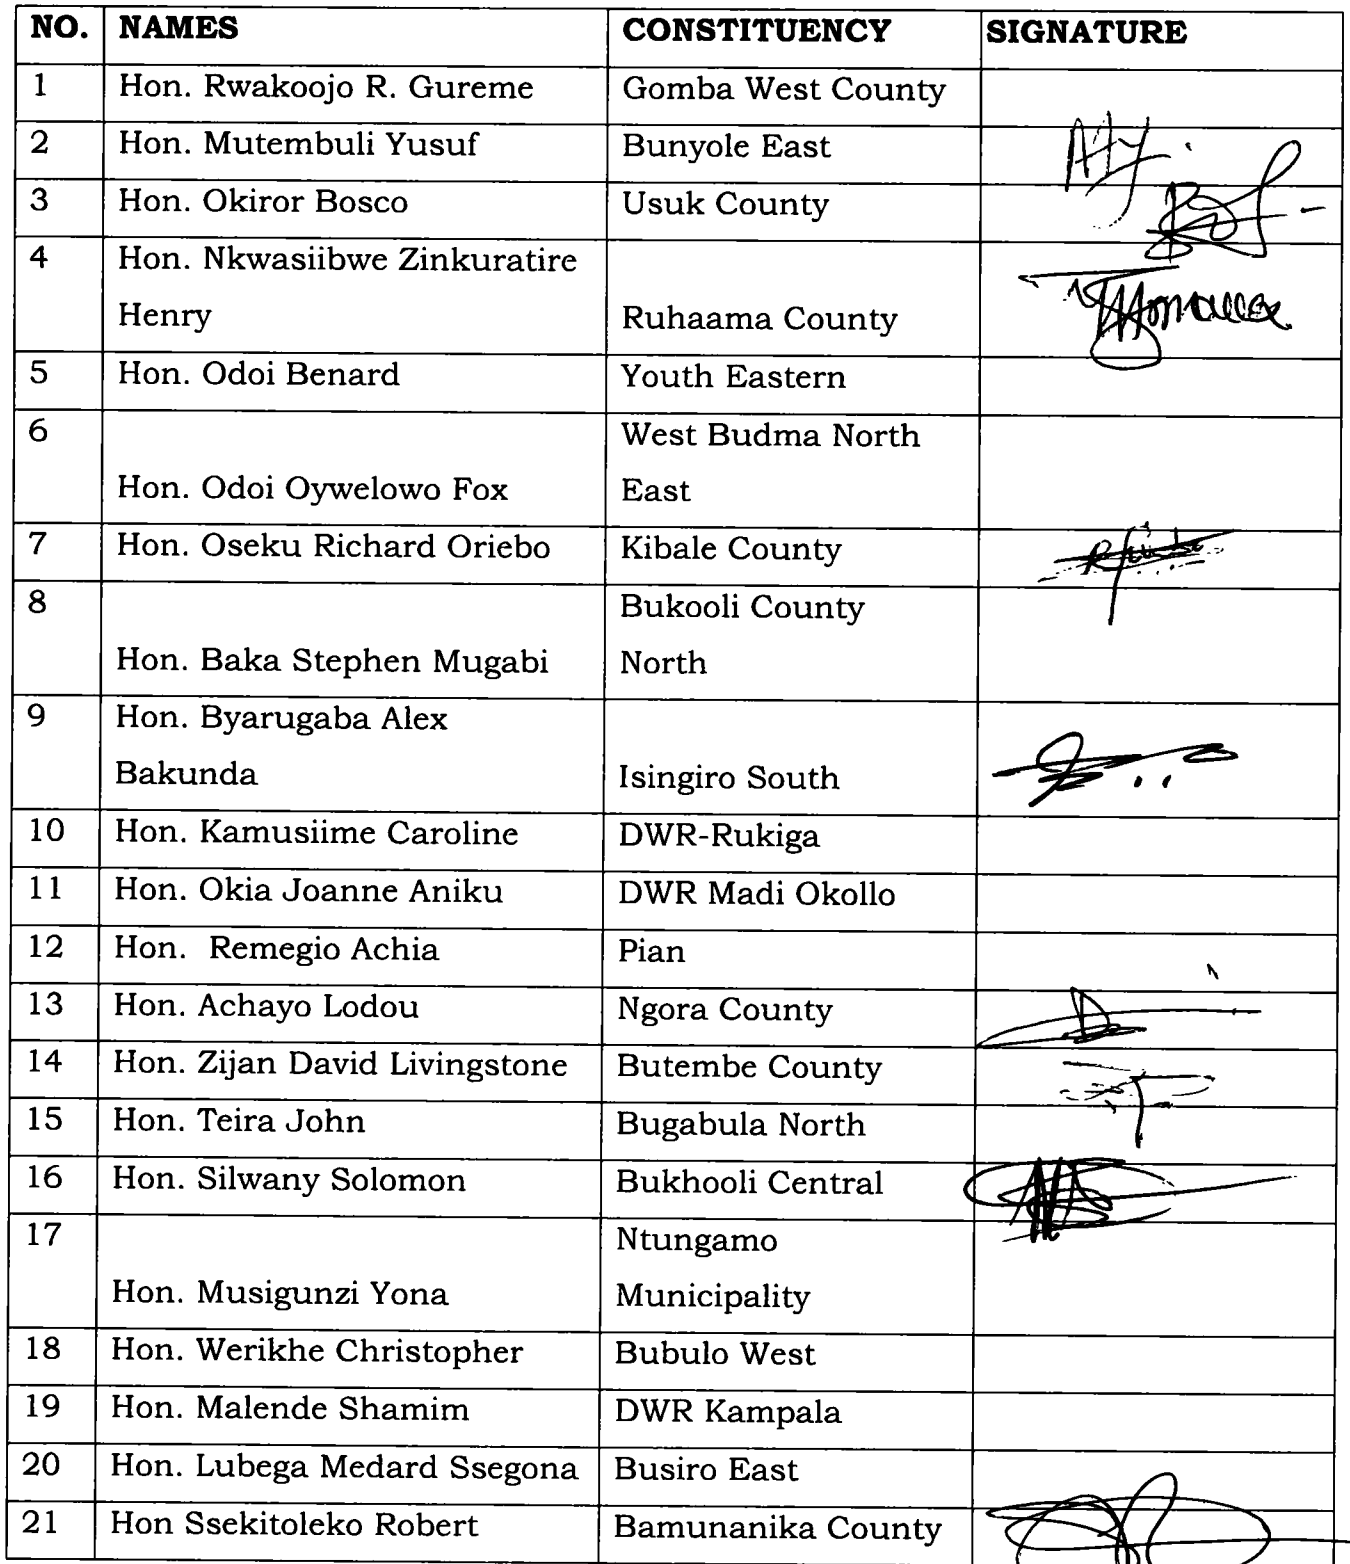 NO. NAMES CONSTITUENCY SIGNATURE
1 Hon. Rwakoojo R. Gureme Gomba West County
2 Hon. Mutembuli Yusuf Bunyole East
3 Hon. Okiror Bosco Usuk County
4 Hon. Nkwasiibwe Zinkuratire
Henry Ruhaama County
5 Hon. Odoi Benard Youth Eastern
6 West Budma North
Hon. Odoi Oywelowo Fox East
7 Hon. Oseku Richard Oriebo Kibale County
8 Bukooli County
Hon. Baka Stephen Mugabi North
9 Hon. Byarugaba Alex
Bakunda Isingiro South
10 Hon. Kamusiime Caroline DWR-Rukiga
11 Hon. Okia Joanne Aniku DWR Madi Okollo
12 Hon. Remegio Achia Pian
13 Hon. Achayo Lodou Ngora County
14 Hon. Zijan David Livingstone Butembe County
15 Hon. Teira John Bugabula North
16 Hon. Silwany Solomon Bukhooli Central
17 Ntungamo
Hon. Musigunzi Yona Municipality
18 Hon. Werikhe Christopher Bubulo West
19 Hon. Malende Shamim DWR Kampala
20 Hon. Lubega Medard Ssegona Busiro East
21 Hon Ssekitoleko Robert Bamunanika County